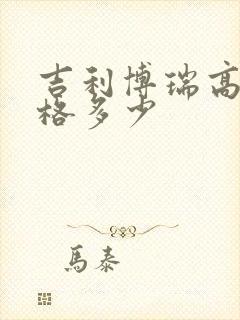 吉利博瑞高
格多少
馬泰